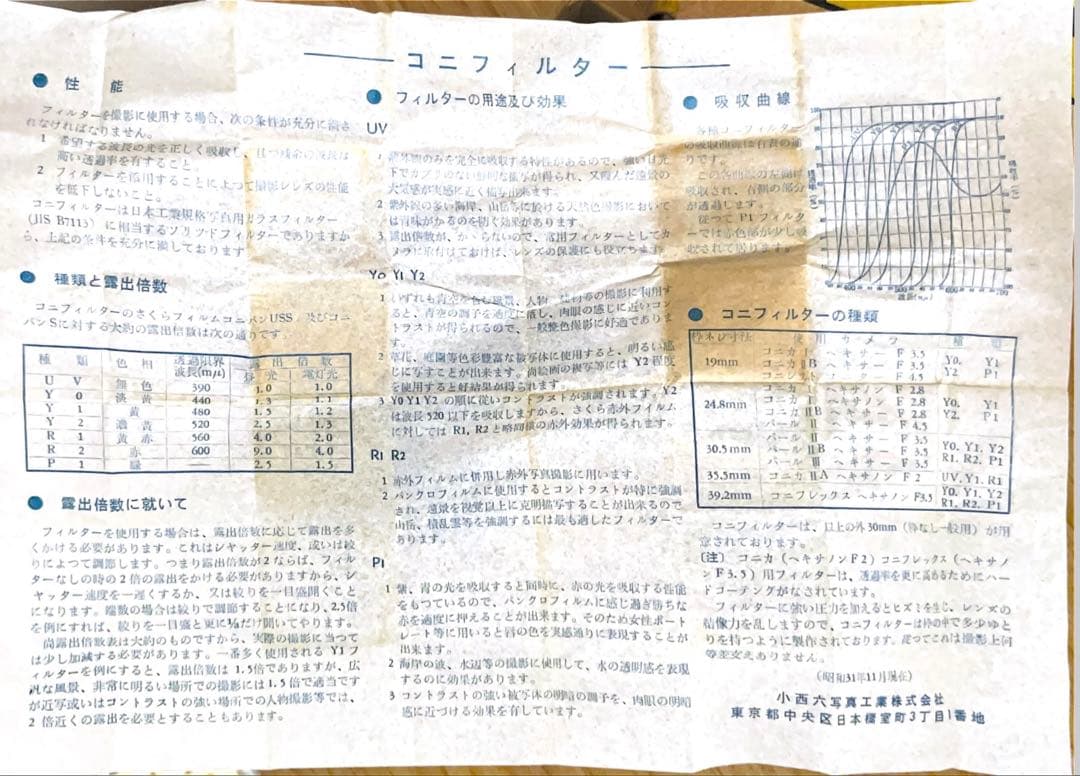 コニフィルター
● 性能
フィルターを撮影に使用する場合、次の条件が充分に満さ
れなければなりません。
1 希望する波長の光を正しく吸収し、且つ残余の波長は
高い透過率を有すること。
2 フィルターを常用することによつて撮影レンズの性能
を低下しないこと。
コニフィルターは日本工業規格写真用ガラスフィルター
(JIS B7113) に相当するソリッドフィルターでありますか
ら、上記の条件を充分に満しております
● 種類と露出倍数
コニフィルターのさくらフィルムコニパンUSS 及びコニ
パンSに対する大約の露出倍数は次の通りです。
種類 色相 透過限界波長(mμ) 露出倍数 昼光 電灯光
U V 無色 390 1.0 1.0
Y 0 淡黄 440 1.3 1.1
Y 1 黄 480 1.5 1.2
Y 2 濃黄 520 2.5 1.3
R 1 黄赤 560 4.0 2.0
R 2 赤 600 9.0 4.0
P 1 緑 — 2.5 1.5
● 露出倍数に就いて
フィルターを使用する場合は、露出倍数に応じて露出を多
くかける必要があります。これはシャッター速度、或いは絞
りによつて調節します。つまり露出倍数が2ならば、フィル
ターなしの時の2倍の露出をかける必要がありますから、シ
ャッター速度を一遅くするか、又は絞りを一目盛開くこと
になります。端数の場合は絞りで調節することになり、2.5倍
を例にすれば、絞りを一目盛と更に⅓だけ開いてやります。
尚露出倍数表は大約のものですから、実際の撮影に当つて
は少し加減する必要があります。一番多く使用される Y1 フ
ィルターを例にすると、露出倍数は 1.5倍でありますが、広
汎な風景、非常に明るい場所での撮影には1.5倍で適当です
が近写或いはコントラストの強い場所での人物撮影等では、
2 倍近くの露出を必要とすることもあります。
● フィルターの用途及び効果
UV
1 紫外線のみを完全に吸収する特性があるので、強い日光
下でカブリのない鮮明な描写が得られ、又霞んだ遠景の
大気感が実感に近く描写出来ます。
2 紫外線の多い海岸、山岳等に於ける天然色撮影において
は青味がかるのを防ぐ効果があります。
3 露出倍数が、かゝらないので、常用フィルターとしてカ
メラに取付けておけば、レンズの保護にも役立ちます。
Y0 Y1 Y2
1 いずれも青空を含む風景、人物、建物等の撮影に利用す
ると、青空の調子を適度に落し、肉眼の感じに近いコン
トラストが得られるので、一般整色撮影に好適でありま
す。
2 草花、庭園等色彩豊富な被写体に使用すると、明るい感
じに写すことが出来ます。尚絵画の複写等には Y2 程度
を使用すると好結果が得られます。
3 Y0 Y1 Y2 の順に従いコントラストが強調されます。Y2
は波長 520 以下を吸収しますから、さくら赤外フィルム
に対しては R1, R2 と略同様の赤外効果が得られます。
R1 R2
1 赤外フィルムに併用し赤外写真撮影に用います。
2 パンクロフィルムに使用するとコントラストが特に強調
され、遠景を視覚以上に克明描写することが出来るので
山岳、積乱雲等を強調するには最も適したフィルターで
あります。
P1
1 紫、青の光を吸収すると同時に、赤の光を吸収する性能
をもつているので、パンクロフィルムに感じ過ぎ勝ちな
赤を適度に押えることが出来ます。そのため女性ポート
レート等に用いると唇の色を実感通りに表現することが
出来ます。
2 海岸の波、水辺等の撮影に使用して、水の透明感を表現
するのに効果があります。
3 コントラストの強い被写体の明暗の調子を、肉眼の明暗
感に近づける効果を有しています。
● 吸収曲線
各種コニフィルター
の吸収曲線は右表の通
りです。
この各曲線の左側は
吸収され、右側の部分
が透過します。
従つて P1 フィルタ
ーでは赤色部が少し吸
収されて居ります。
400 500 600 700
波長(mμ)
● コニフィルターの種類
枠ネジ寸法 使用カメラ 種類
19mm コニカ I ヘキサー F 3.5
コニカ II B ヘキサー F 3.5
F 4.5
Y0. Y1
Y2 P1
24.8mm コニカ I ヘキサノン F 2.8
コニカ II B ヘキサー F 2.8
パール II ヘキサー F 4.5
Y0. Y1
Y2. P1
30.5mm パール II ヘキサー F 3.5
パール II B ヘキサー F 3.5
パール III ヘキサー F 3.5
Y0. Y1, Y2
R1. R2. P1
35.5mm コニカ II A ヘキサノン F 2 UV. Y1. R1
39.2mm コニフレックス ヘキサノン F3.5 Y0. Y1. Y2
R1. R2. P1
コニフィルターは、以上の外30mm (枠なし一般用) が用
意されております。
〔注〕 コニカ (ヘキサノンF2) コニフレックス (ヘキサノ
ン F3.5) 用フィルターは、透過率を更に高めるためにハー
ドコーチングがなされています。
フィルターに強い圧力を加えるとヒズミを生じ、レンズの
結像力を乱しますので、コニフィルターは枠の中で多少ゆと
りを持つように製作されております。従つてこれは撮影上何
等差支えありません。
(昭和31年11月現在)
小西六写真工業株式会社
東京都中央区日本橋室町3丁目1番地